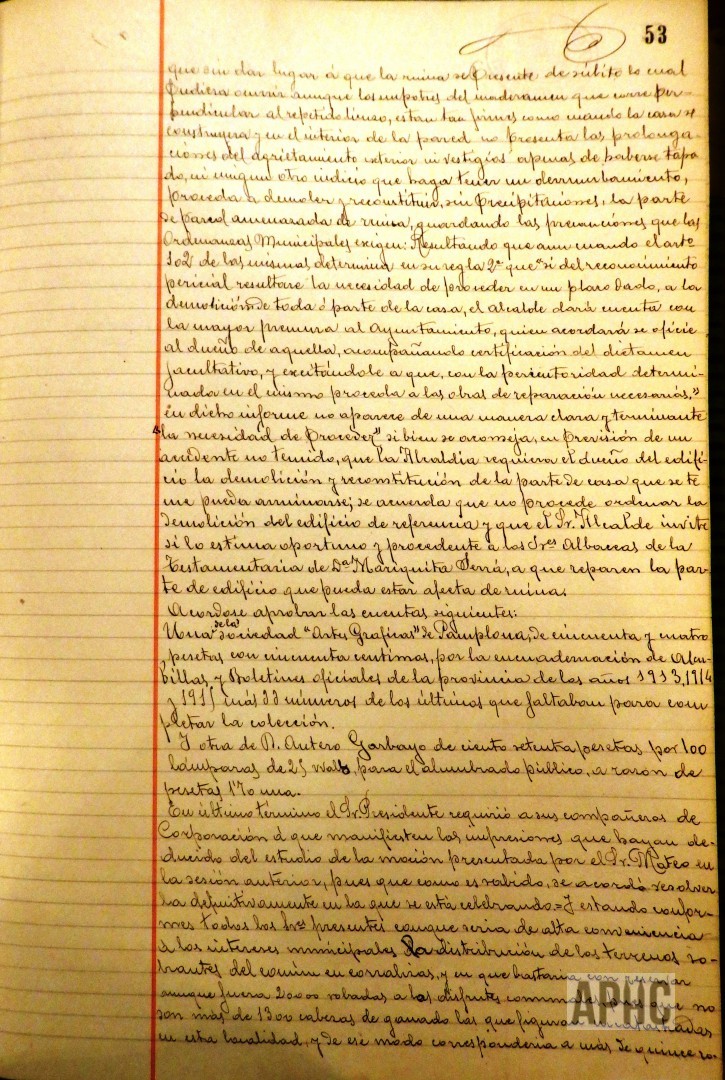 53
que sin dar lugar á que la ruina se presente de súbito lo cual
pudiera ocurrir aunque los empotres del maderamen que corre per-
pendicular al repetido lienzo, estan tan firmes como cuando la casa se
construyera y en el interior de la pared no presenta las prolonga-
ciones del agrietamiento exterior ni vestigios apenas de haberse tapa-
do, ni ningun otro indicio que haga temer un derrumbamiento,
proceda a demoler y reconstituir, sin precipitaciones, la parte
de pared amenazada de ruina, guardando las precauciones que las
Ordenanzas Municipales exigen: Resultando que aun cuando el artº
102 de las mismas determina en su regla 2ª que "si del reconocimiento
pericial resultare la necesidad de proceder en un plazo dado, a la
demolición de toda ó parte de la casa, el alcalde dará cuenta con
la mayor premura al Ayuntamiento, quien acordará se oficie
al dueño de aquella, acompañando certificación del dictamen
facultativo, y excitándole a que, con la perentoridad determi-
nada en el mismo proceda a las obras de reparación necesarias,"
en dicho informe no aparece de una manera clara y terminante
"la necesidad de proceder" si bien se aconseja, en previsión de un
accidente no temido, que la Alcaldia requiera el dueño del edifi-
cio la demolición y reconstitución de la parte de casa que se te-
me pueda arruinarse; se acuerda que no procede ordenar la
demolición del edificio de referencia y que el Sr. Alcalde invite
si lo estima oportuno y procedente a los Sres Albaceas de la
Testamentaria de Dª Mariquita Serrá, a que reparen la par-
te de edificio que pueda estar afecta de ruina.
Acordose aprobar las cuentas siguientes:
Una de la sociedad "Artes Graficas" de Pamplona, de cincuenta y cuatro
pesetas con cincuenta centimos, por la encuadernación de Alcu-
billas y Boletines oficiales de la provincia de los años 1913, 1914
y 1915 más 33 números de los últimos que faltaban para com-
pletar la colección.
Y otra de D. Antero Garbayo de ciento setenta pesetas por 100
lámparas de 25 watts, para el alumbrado público, a razón de
pesetas 1'70 una.
En último término el Sr. Presidente requirió a sus compañeros de
Corporación á que manifiesten las impresiones que hayan de-
ducido del estudio de la moción presentada por el Sr. Mateo en
la sesión anterior, pues que como es sabido, se acordó resolver-
la definitivamente en la que se está celebrando = Y estando confor-
mes todos los Sres presentes en que seria de alta conveniencia
a los intereses municipales la distribución de los terrenos so-
brantes del comun en corralizas, y en que bastaria con reservar
aunque fuera 20000 robadas a los disfrutes comunales, que no
son más de 1300 cabezas de ganado las que figuran
en esta localidad, y de ese modo corresponderia a más de quince ro-
APHC